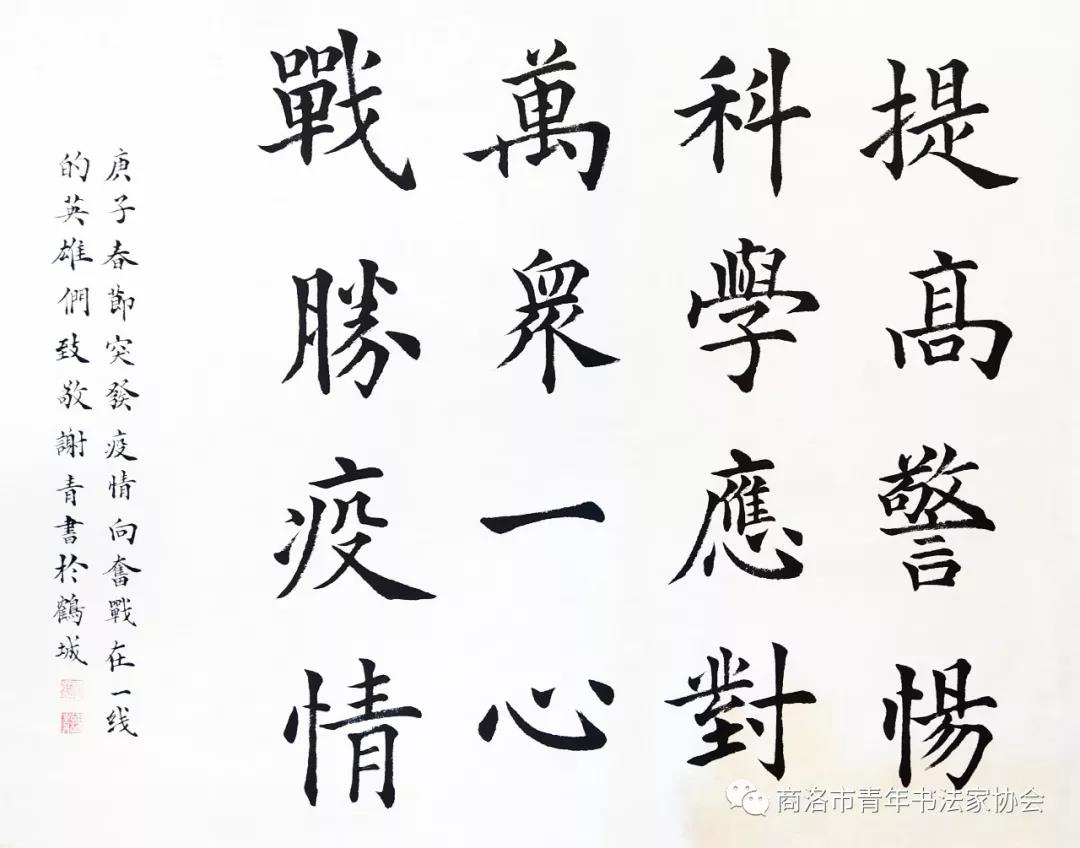 提高警惕
科學應對
萬眾一心
戰勝疫情
庚子春節突發疫情向奮戰在一线
的英雄們致敬謝青書於鶴城
商洛市青年书法家协会